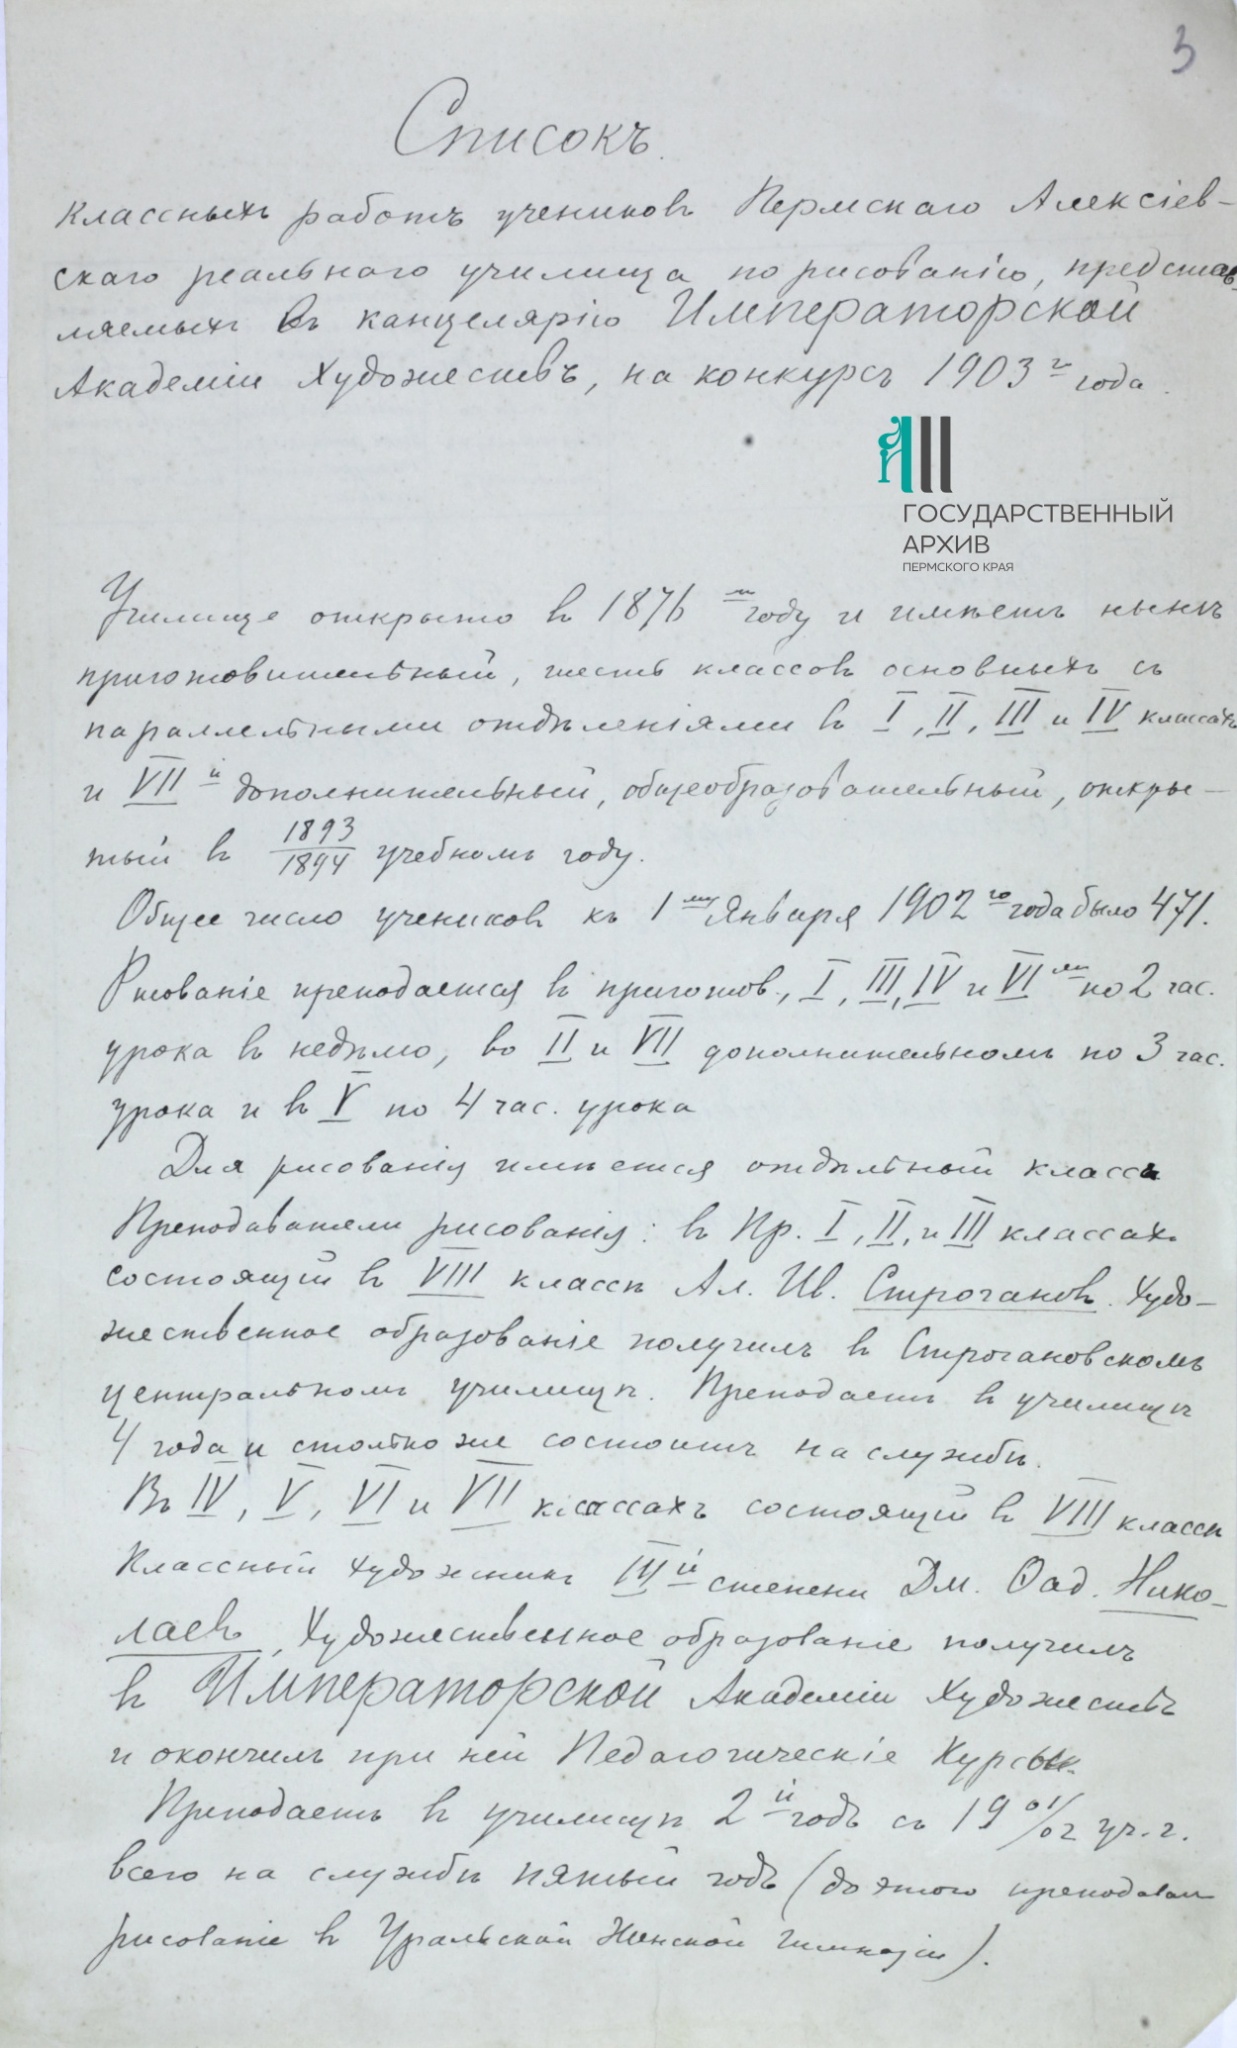 3
Списокъ.
классныхъ работъ учениковъ Пермскаго Алексіев-
скаго реальнаго училища по рисованію, представ-
ляемыхъ въ канцелярію Императорской
Академіи Художествъ, на конкурсъ 1903 г года.
ГОСУДАРСТВЕННЫЙ
АРХИВ
ПЕРМСКОГО КРАЯ
Училище открыто въ 1876 м году и имѣетъ нынѣ
приготовительный, шесть классовъ основныхъ съ
параллельными отдѣленіями въ I, II, III и IV классахъ
и VII й дополнительный, общеобразовательный, откры-
тый въ 1893/1894 учебномъ году.
Общее число учениковъ къ 1 му Января 1902 го года было 471.
Рисованіе преподается въ приготов., I, III, IV и VI мъ по 2 час.
урока въ недѣлю, во II и VII дополнительномъ по 3 час.
урока и въ V по 4 час. урока
Для рисованія имѣется отдѣльный классъ
Преподаватели рисованія: въ Пр. I, II, и III классахъ
состоящій въ VIII классѣ Ал. Ив. Строгановъ. Худо-
жественное образованіе получилъ въ Строгановскомъ
центральномъ училищѣ. Преподаетъ въ училищѣ
4 года и столько же состоитъ на службѣ.
Въ IV, V, VI и VII классахъ состоящій въ VIII классѣ
Классный художникъ III й степени Дм. Фад. Нико-
лаевъ. Художественное образованіе получилъ
въ Императорской Академіи Художествъ
и окончилъ при ней Педагогическіе Курсы.
Преподаетъ въ училищѣ 2 й годъ съ 1901/02 уч. г.
всего на службѣ пятый годъ (до этого преподавал
рисованіе въ Уральской Женской гимназіи).